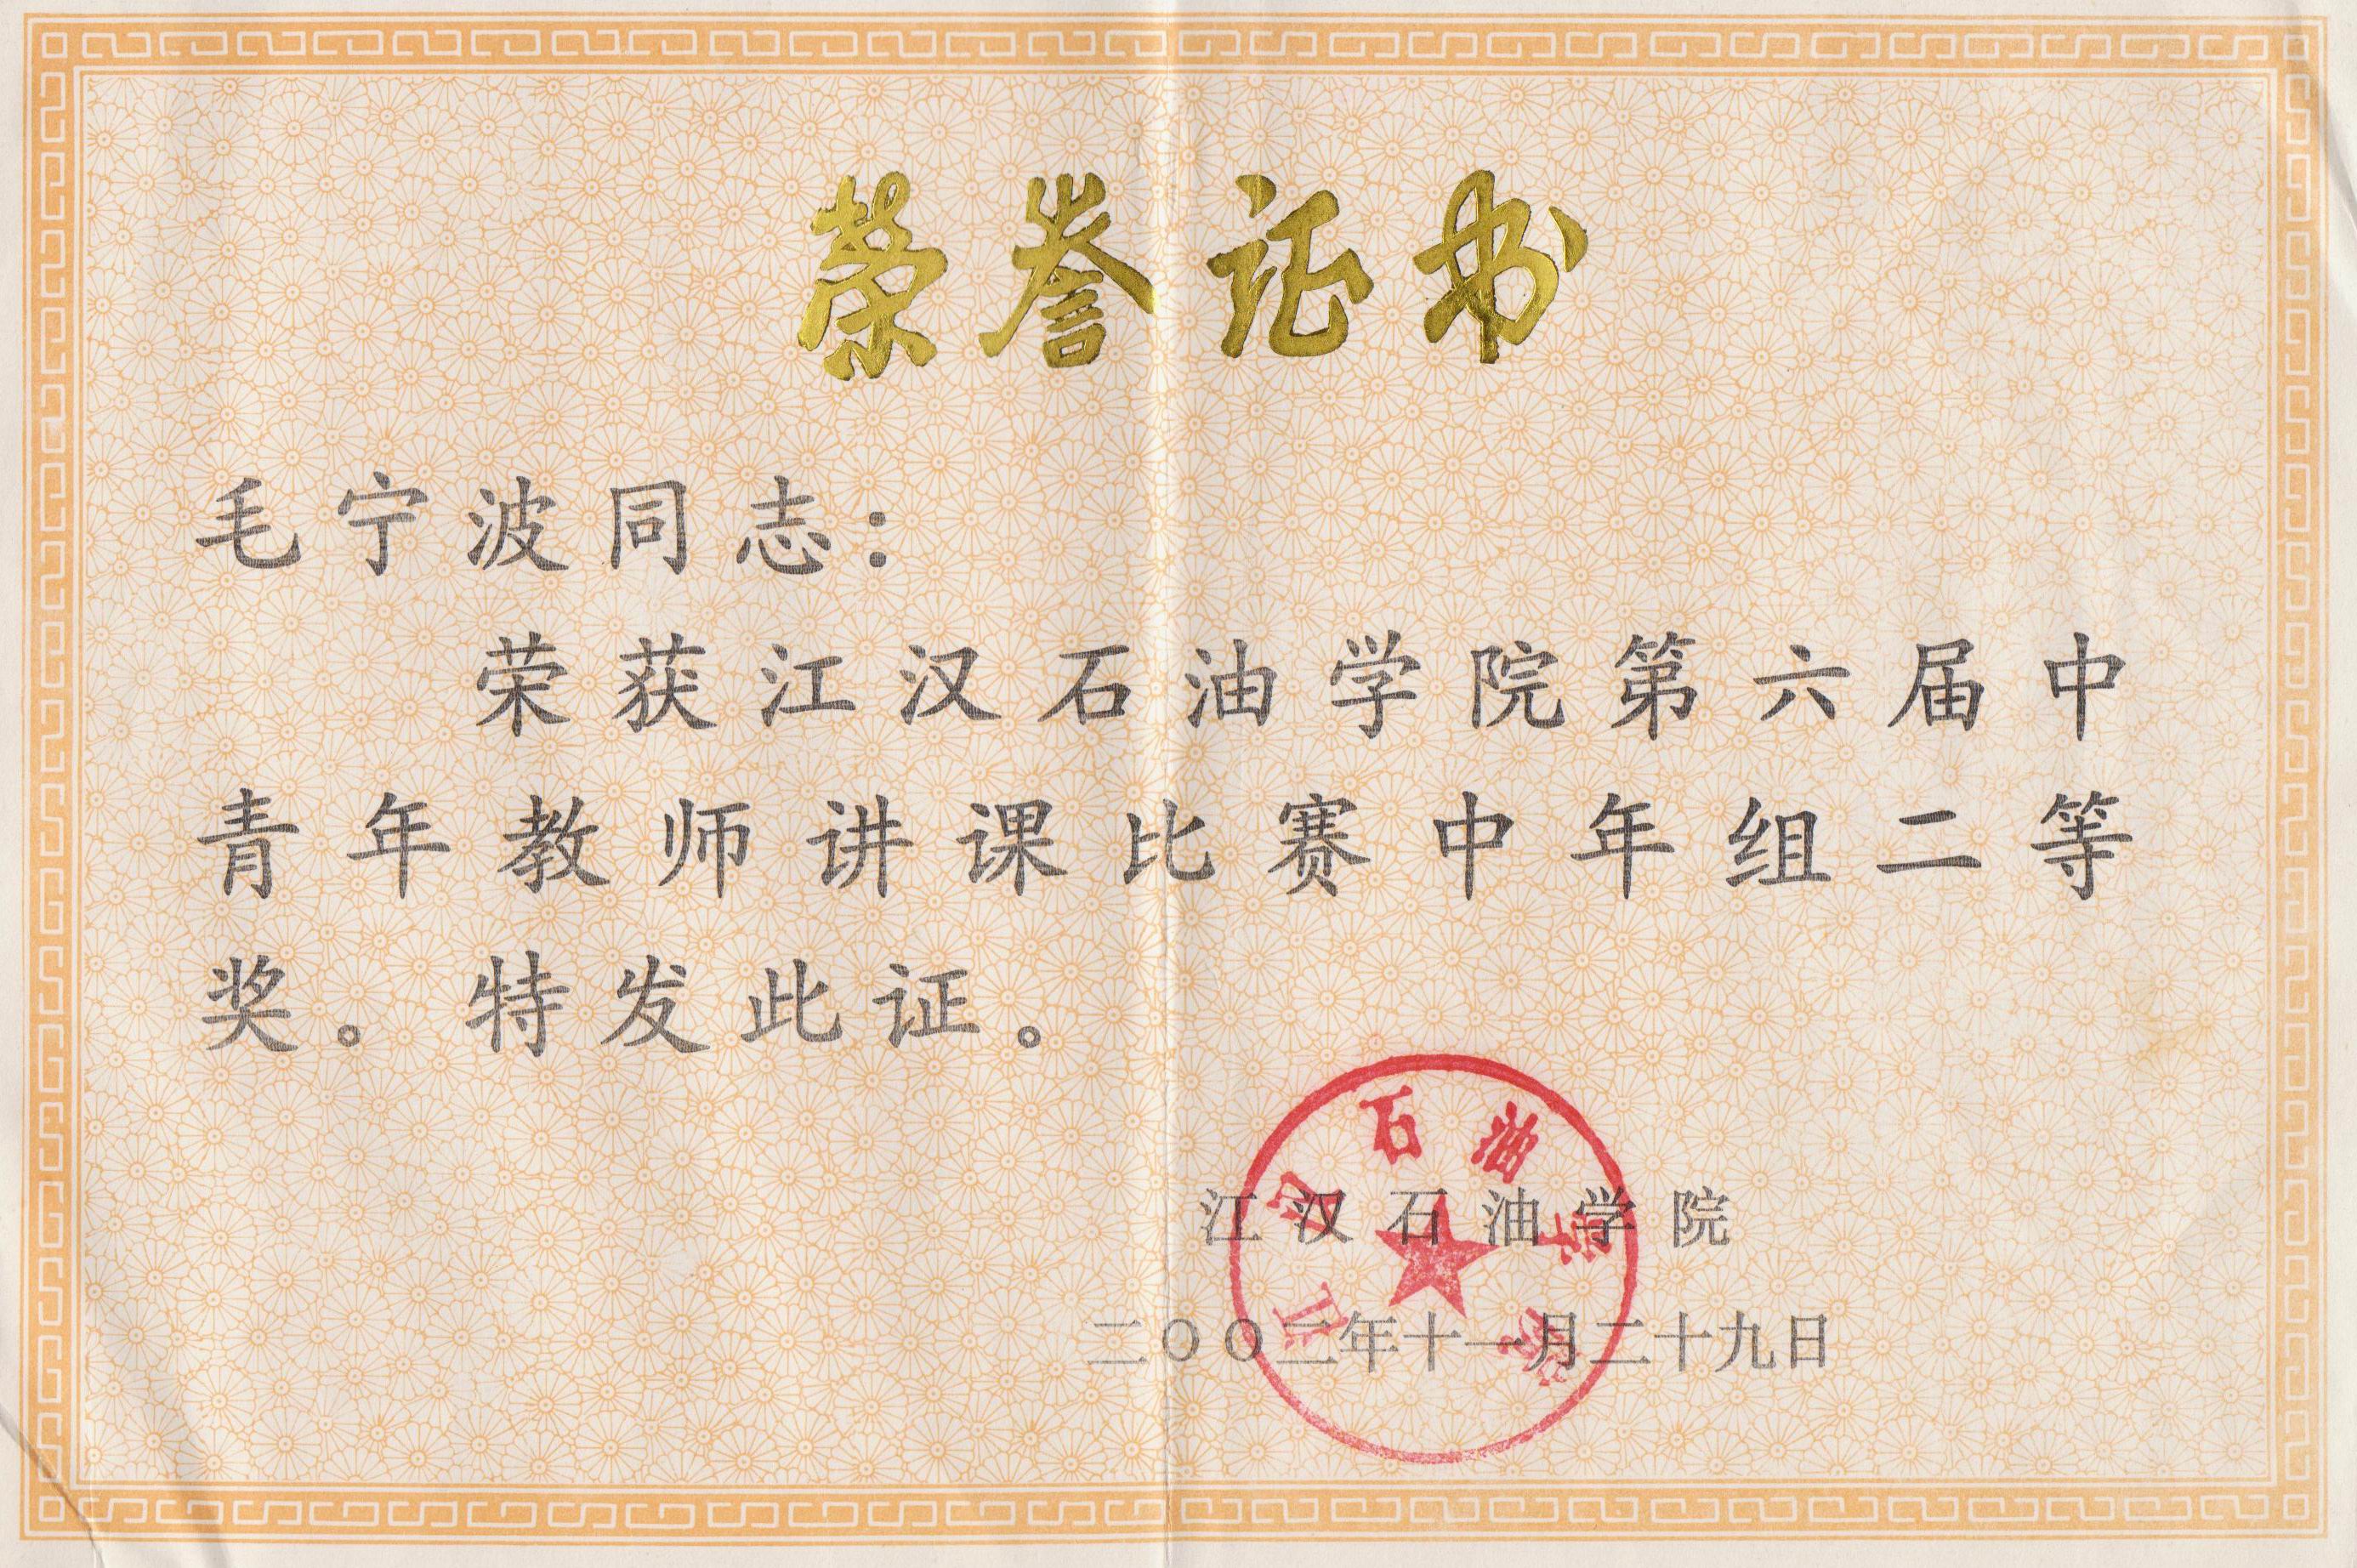 荣誉证书
毛宁波同志：
荣获江汉石油学院第六届中
青年教师讲课比赛中年组二等
奖。特发此证。
江汉石油学院
江汉石油学院
二○○二年十一月二十九日